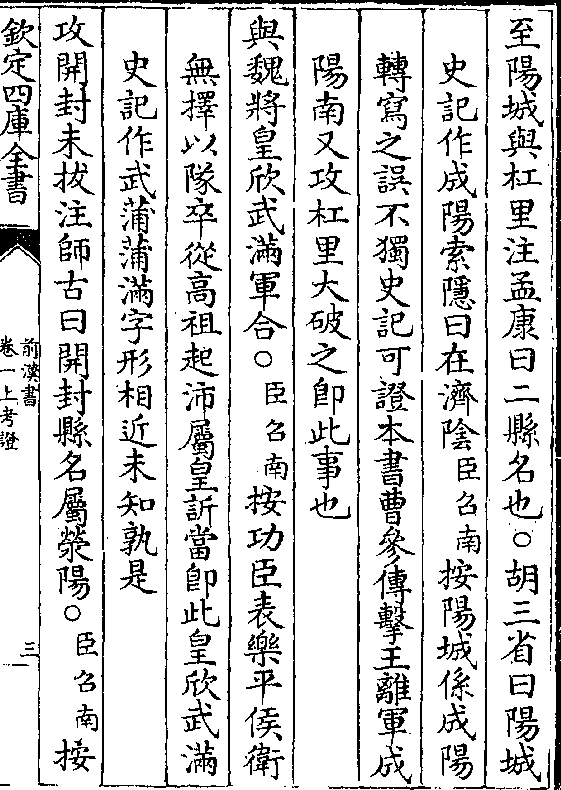 至陽城與杠里注孟康曰二縣名也○胡三省曰陽城
史記作成陽索隱曰在濟陰臣召南按陽城係成陽
轉寫之誤不獨史記可證本書曹參傳擊王離軍成
陽南又攻杠里大破之卽此事也
與魏將皇欣武滿軍合○臣召南按功臣表樂平侯衛
無擇以隊卒從高祖起沛屬皇訢當卽此皇欣武滿
史記作武蒲蒲滿字形相近未知孰是
攻開封未拔注師古曰開封縣名屬滎陽○臣召南按
欽定四庫全書
前漢書
卷一上考證
三